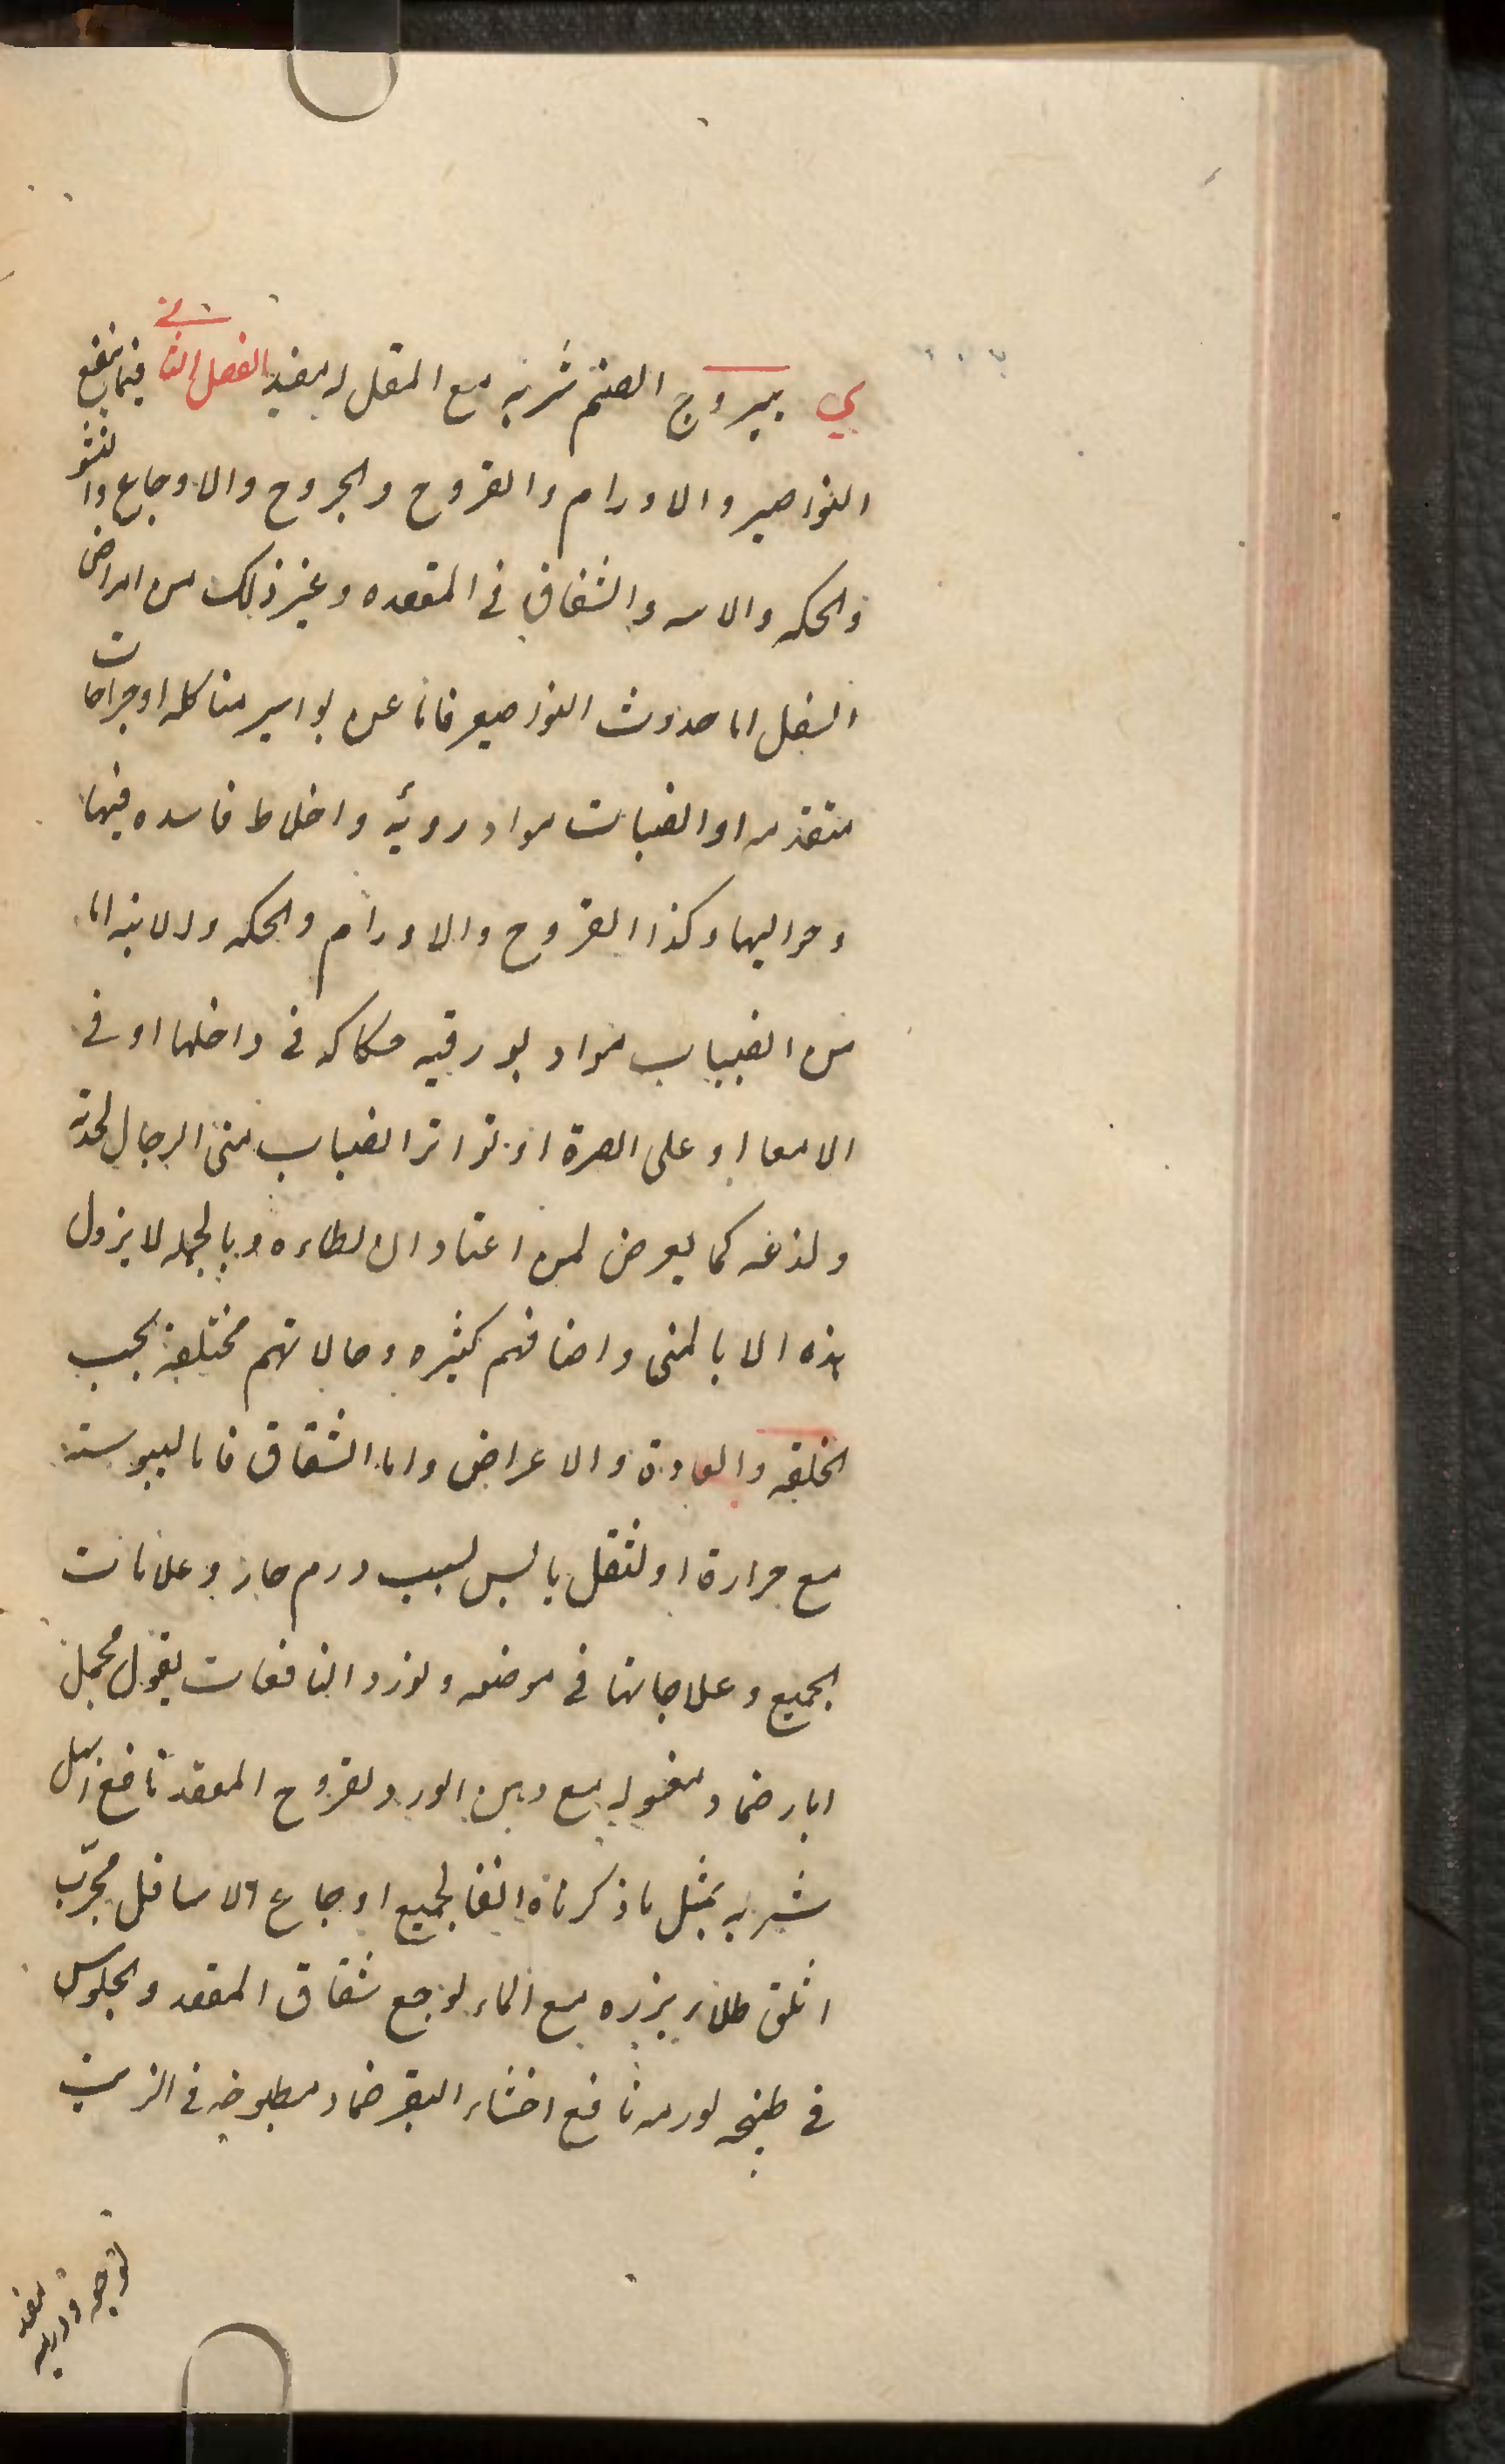 ي يبروج الصنم شربه مع المقل له مفيد الفصل الثانى فيما ينفع
النواصير والاورام والقروح والجروح والاوجاع والنتو
والحكه والابنه والشقاق فى المقعده وغير ذلك من امراض
السفل اما حدوث النواصير فاما عن بواسير متاكله او جراحات
متقدمه او انصبات مواد رديّه واخلاط فاسده فيها
وحواليها وكذا القروح والاورام والحكه والابنه اما
من انصباب مواد بورقيه حكاكه فى داخلها او فى
الامعا او على السرة او تواتر انصباب منى الرجال لحدته
ولذغه كما يعرض لمن اعتاد اللطاءه وبالجمله لا يزول
هذه الا بالمنى واصنافهم كثيره وحالاتهم مختلفة بحسب
الخلقه والعادة والاعراض واما الشقاق فاما ليبوسته
مع حرارة او لثقل يابس لسبب ورم حار وعلامات
الجميع وعلاجاتها فى موضعه ونورد النافعات بقول مجمل
ابار ضماد مغسوله مع دهن الورد لقروح المقعد نافع ابهل
شربه بمثل ما ذكرناه انفا لجميع اوجاع الاسافل مجرّب
اثلق طلاء بزره مع الماء لوجع شقاق المقعد والجلوس
فى طبخه لورمه نافع اخثاء البقر ضماد مطبوخه فى الزيت
لوجعه وورمه مفيد